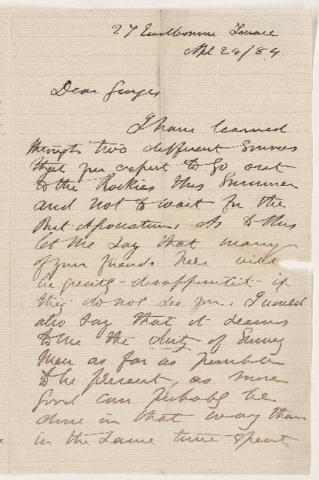 27 Eastbourne Terrace
Apl 24/84
Dear George
I have learned
through two different sources
that you expect to go out
to the Rockies this Summer
and not to wait for the
Brit Association. As to this
let me say that many
of your friends here will
be greatly disappointed if
they do not see you. I would
also say that it seems
to me the duty of Survey
Men as far as possible
to be present, as more
good can probably be
done in that way than
in the same time spent